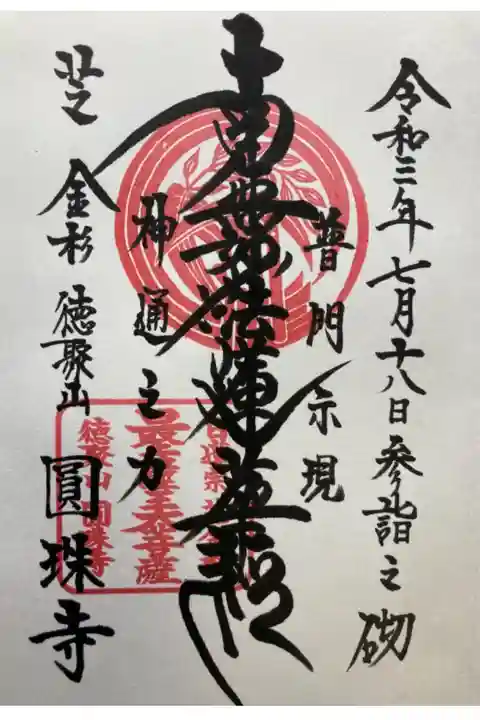 令和三年七月十八日参詣之砌
普門示現
南無妙法蓮華経
神通之力
芝金杉徳聚山圓珠寺
最正木菩薩
徳聚山圓珠寺